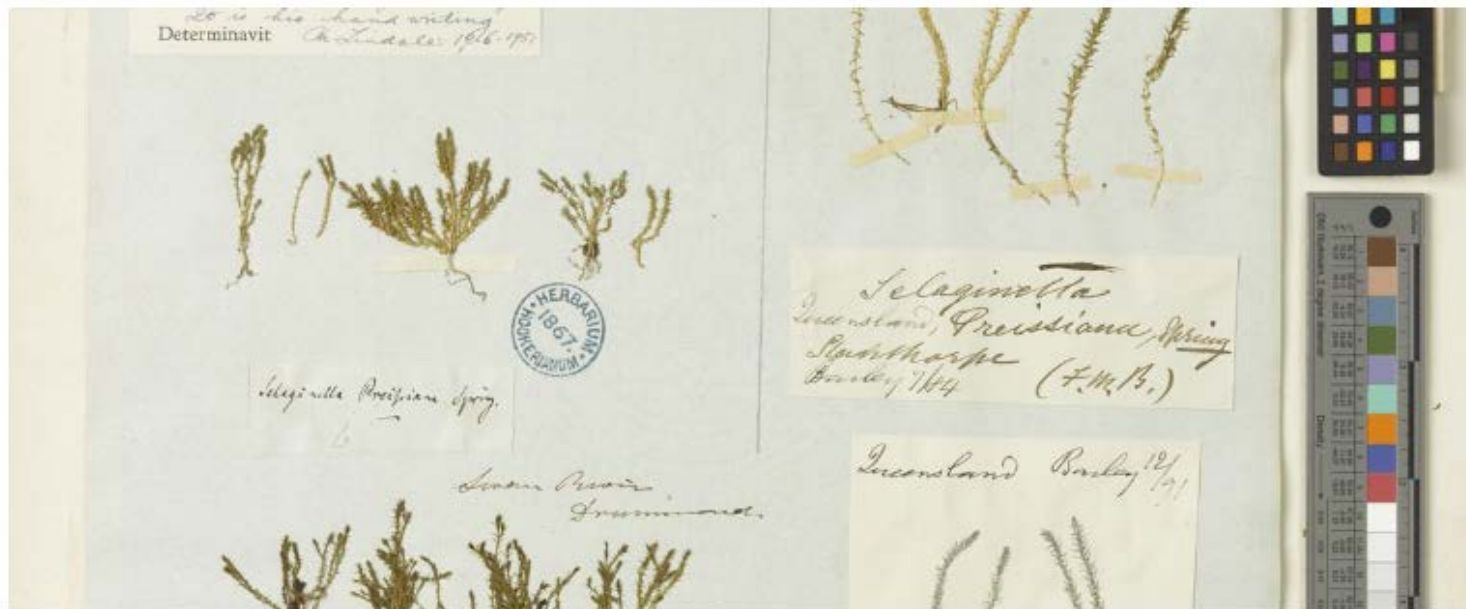 It is his handwriting
Determinavit
HERBARIUM
HOOKERIANUM
1867.
Selaginella Preissiana Spring.
Swan River
Drummond.
Selaginella
Queensland, Preissiana, Spring
Stanthorpe
Bailey 7/84 (F.M.B.)
Queensland Bailey 12/91